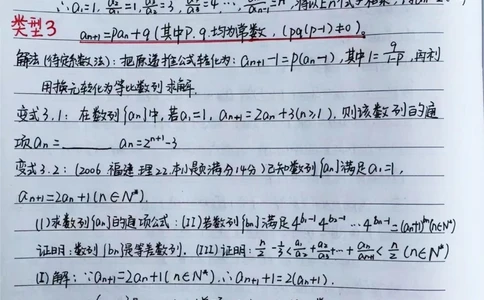 ∴a₁=1, a₂/a₁=1, a₃/a₂=3, a₄/a₃=4, …, =n
类型3 aₙ₊₁=paₙ+q (其中p.q.均为常数, (pq(p-1)≠0)。
解法(待定系数法): 把原递推公式转化为: aₙ₊₁-t=p(aₙ-t), 其中t=q/1-p, 再利
用换元转化为等比数列求解.
变式3.1: 在数列{aₙ}中, 若a₁=1, aₙ₊₁=2aₙ+3(n≥1), 则该数列的通
项aₙ=______ aₙ=2ⁿ⁺¹-3
变式3.2: (2006 福建 理22.本小题满分14分)已知数列{aₙ}满足a₁=1,
aₙ₊₁=2aₙ+1(n∈N*).
(I)求数列{aₙ}的通项公式: (II)若数列{bₙ}满足4^(b₁-1)4^(b₂-1)…4^(bₙ-1)=(aₙ+1)^(bₙ)(n∈N*)
证明:数列{bₙ}是等差数列. (III)证明: n/2-1/3<a₁/a₂+a₂/a₃+…+aₙ/aₙ₊₁<n/2 (n∈N*)
(I)解: ∵aₙ₊₁=2aₙ+1(n∈N*).∴aₙ₊₁+1=2(aₙ+1).